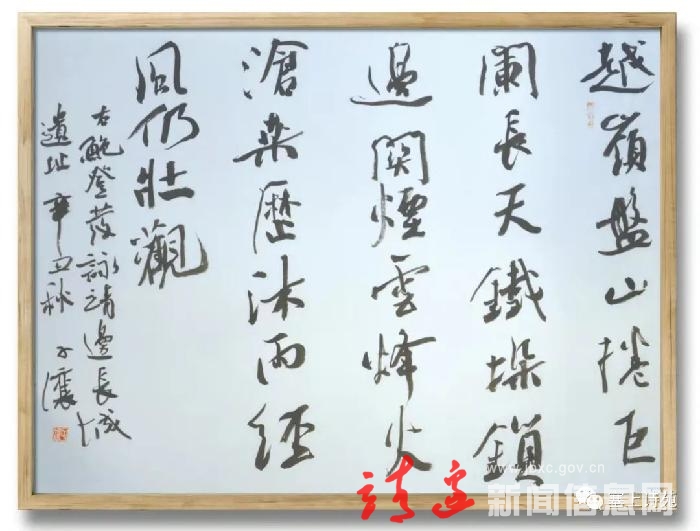 越嶺盤山捲巨
闌長天鐵垛鎖
邊關煙雲烽火
滄桑歷沐雨經
風仍壯觀
右鮑登發詠靖邊長城
遺址 辛丑秋
www.jbxc.gov.cn
靖边 新闻信息网
塞上诗苑